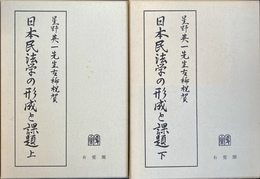 星野英一先生古稀祝賀
日本民法学の形成と課題 上
有斐閣
星野英一先生古稀祝賀
日本民法学の形成と課題 下
有斐閣